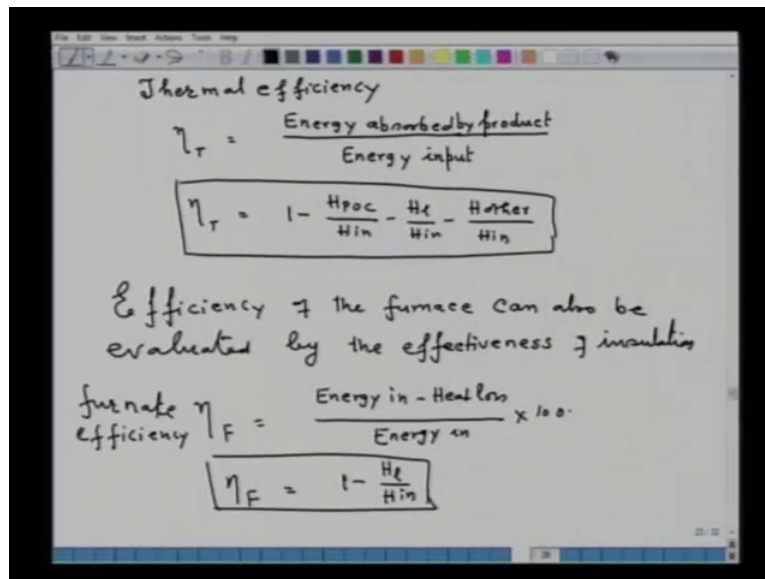 File Edit View Insert Actions Tools Help
Thermal efficiency
η_T = Energy absorbed by product / Energy input
η_T = 1 - Hpoc/Hin - Hl/Hin - Hother/Hin
Efficiency of the furnace can also be
evaluated by the effectiveness of insulation
furnate η_F = Energy in - Heat loss / Energy in × 100.
efficiency
η_F = 1 - Hl/Hin